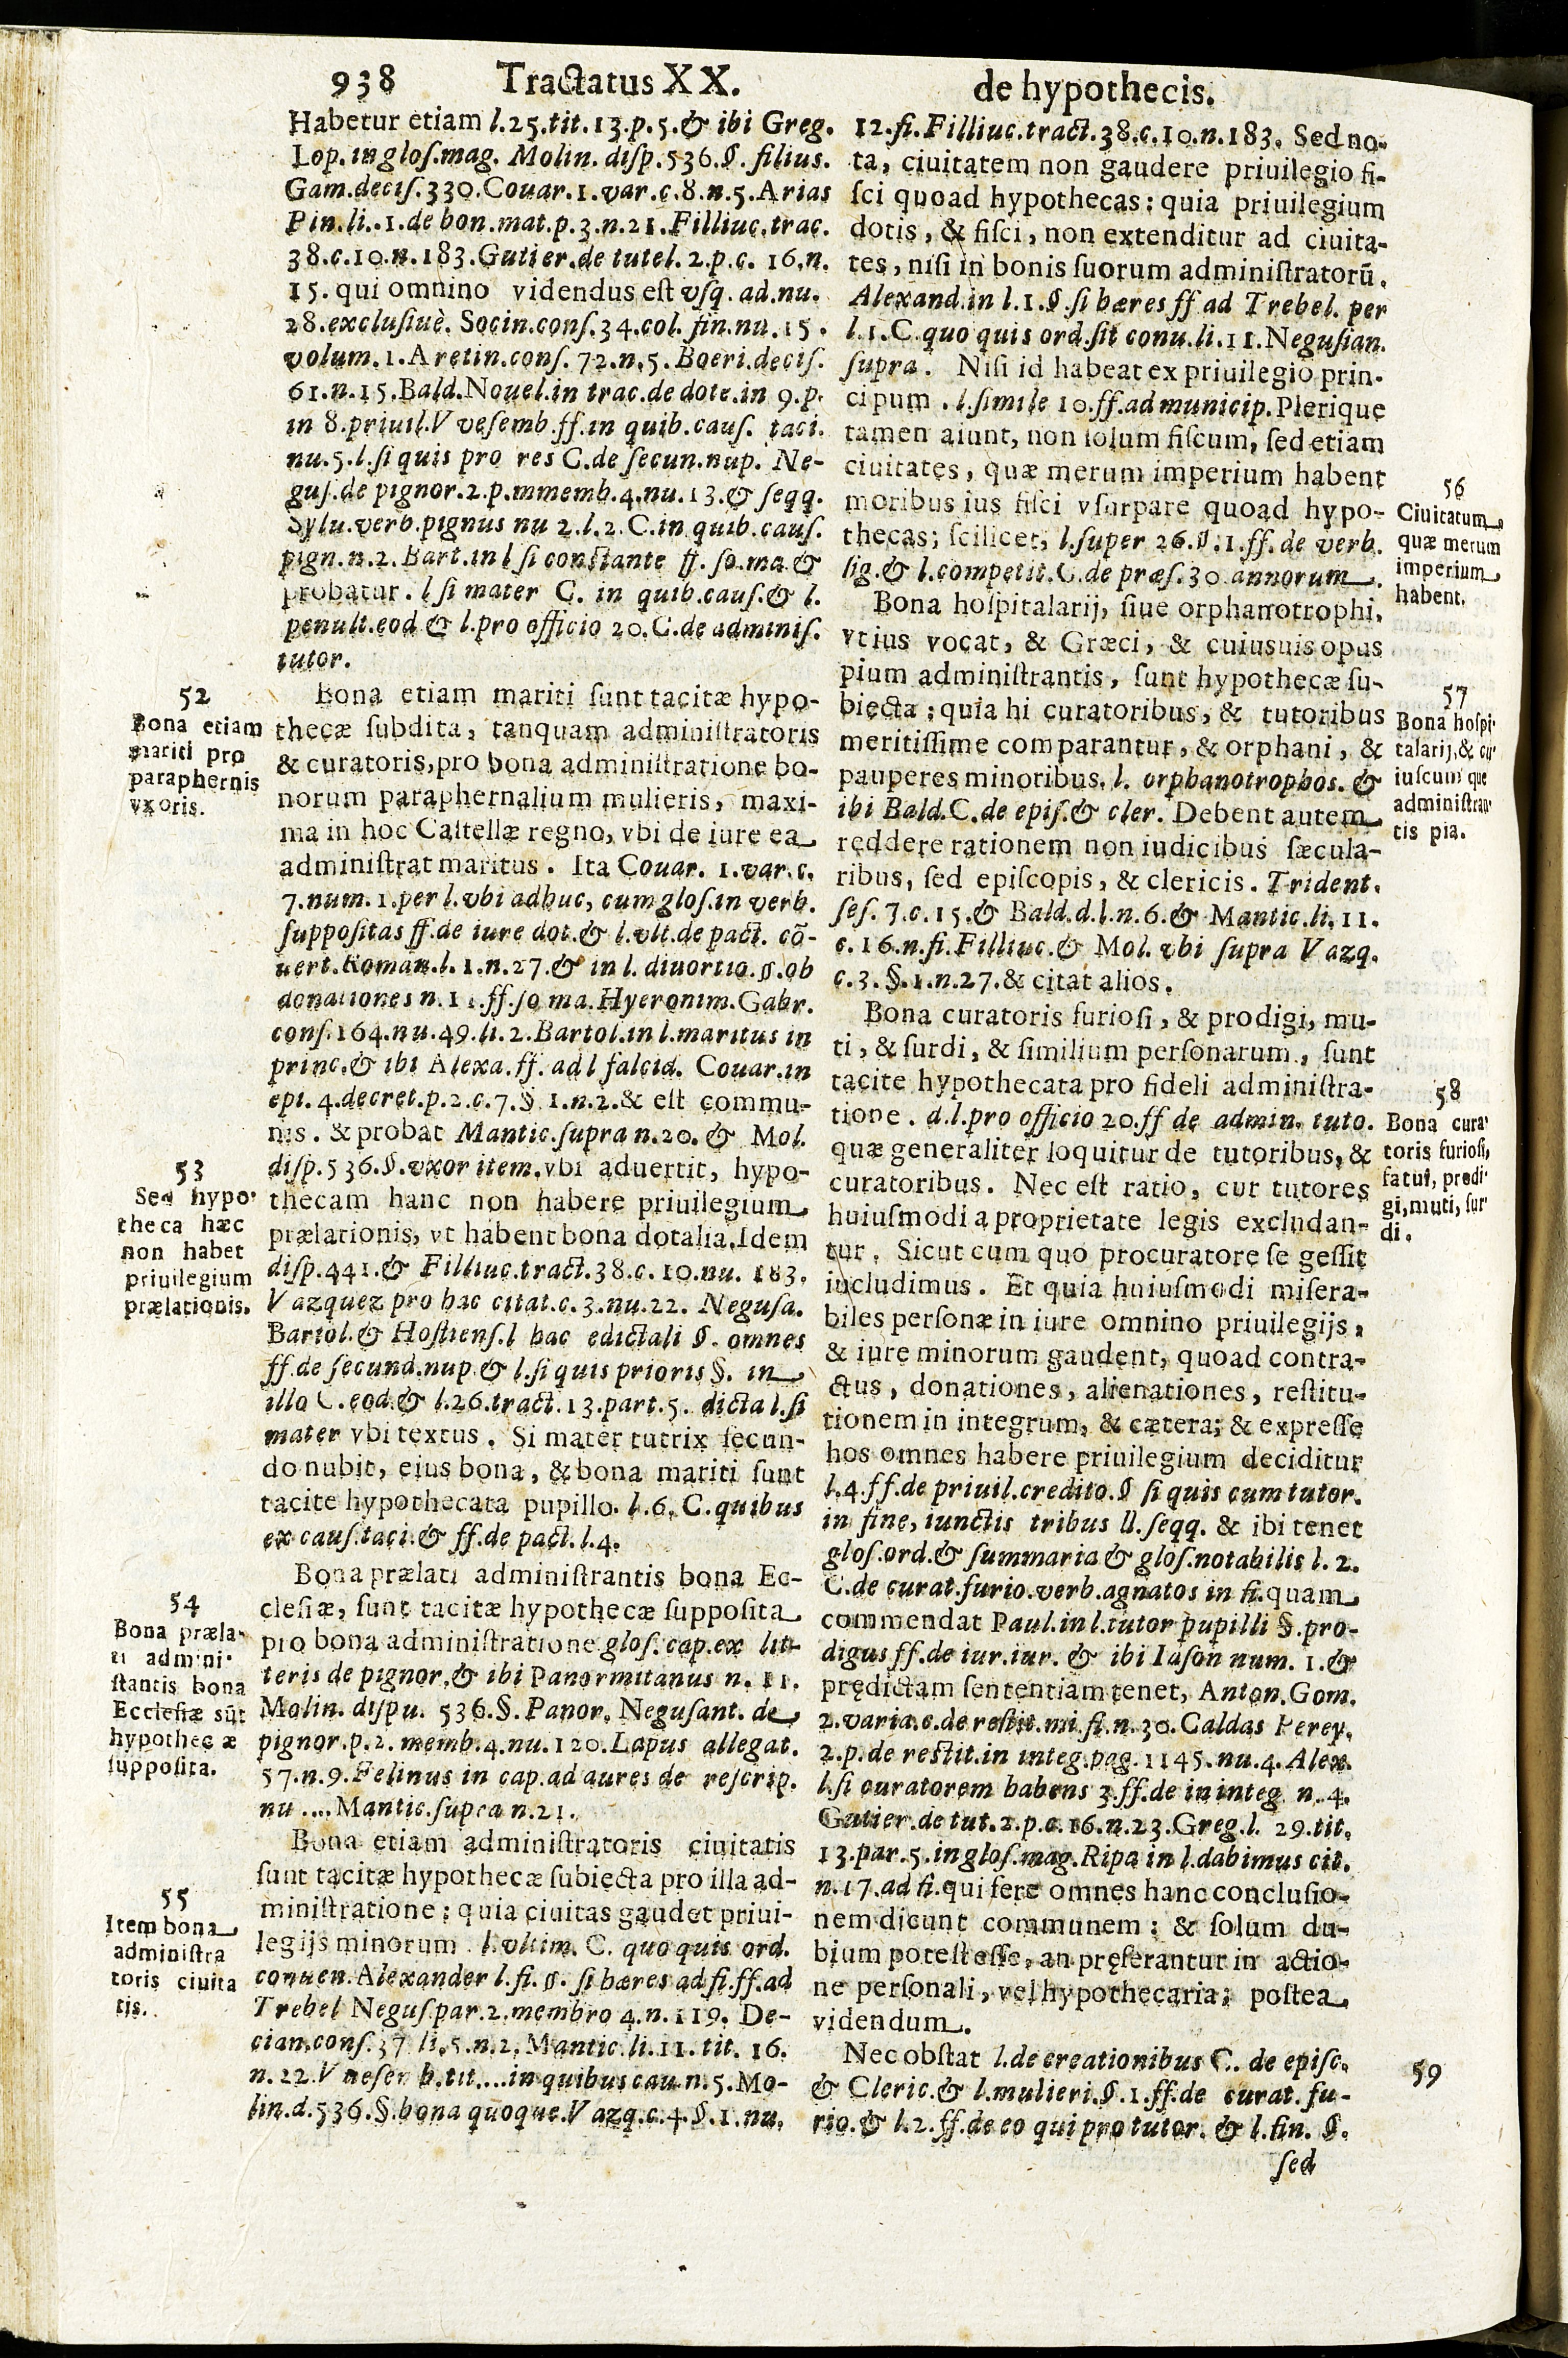 938 Tractatus XX.
de hypothecis.
Habetur etiam l.25.tit.13.p.5.& ibi Greg.
Lop. in glos.mag. Molin. disp.536.§. filius.
Gam.decis.330.Couar.1.var.c.8.n.5.Arias
Pin.li..1.de bon.mat.p.3.n.21.Filliuc.trac.
38.c.10.n.183.Gutier.de tutel.2.p.c. 16.n.
15. qui omnino videndus est vsq. ad.nu.
28.exclusiuè. Socin.cons.34.col. fin.nu.15.
volum.1.Aretin.cons. 72.n.5.Boeri.decis.
61.n.15.Bald.Nouel.in trac.de dote.in 9.p.
in 8.priuil.V vesemb.ff.in quib.caus. taci.
nu.5.l.si quis pro res C.de secun.nup. Ne-
gus.de pignor.2.p.mmemb.4.nu.13.& seqq.
Sylu.verb.pignus nu 2.l.2.C.in quib.caus.
pign.n.2.Bart.in l si constante ff. so.ma &
probatur. l si mater C. in quib.caus.& l.
penult.eod & l.pro officio 20.C.de adminis.
tutor.
52
Bona etiam
mariti pro
paraphernis
vxoris.
Bona etiam mariti sunt tacitæ hypo-
thecæ subdita, tanquam administratoris
& curatoris,pro bona administratione bo-
norum paraphernalium mulieris, maxi-
ma in hoc Castellæ regno, vbi de iure ea
administrat maritus. Ita Couar. 1.var.c.
7.num.1.per l.vbi adhuc, cum glos.in verb.
suppositas ff.de iure dot.& l.vlt.de pact. cō-
uert.Roman.l.1.n.27.& in l. diuortio.§.ob
donationes n.11.ff.so ma.Hyeronim.Gabr.
cons.164.nu.49.li.2.Bartol.in l.maritus in
princ.& ibi Alexa.ff. ad l falcid. Couar.in
epi. 4.decret.p.2.c.7.§ 1.n.2.& est commu-
nis. & probat Mantic.supra n.20.& Mol.
53
Sed hypo-
theca hæc
non habet
priuilegium
prælationis.
disp.536.§.vxor item.vbi aduertit, hypo-
thecam hanc non habere priuilegium
prælationis, vt habent bona dotalia.Idem
disp.441.& Filliuc.tract.38.c.10.nu. 183.
Vazquez pro hac citat.c.3.nu.22. Negusa.
Bartol.& Hostiens.l hac edictali §. omnes
ff.de secund.nup & l.si quis prioris §. in
illo C.eod.& l.26.tract.13.part.5. dicta l.si
mater vbi textus. Si mater tutrix secun-
do nubit, eius bona, & bona mariti sunt
tacite hypothecata pupillo. l.6. C.quibus
ex caus.taci.& ff.de pact.l.4.
54
Bona præla-
ti admini-
stantis bona
Ecclesiæ sūt
hypothec æ
supposita.
Bona prælati administrantis bona Ec-
clesiæ, sunt tacitæ hypothecæ supposita
pro bona administratione.glos.cap.ex lit-
teris de pignor.& ibi Panormitanus n. 11.
Molin. dispu. 536.§.Panor. Negusant. de
pignor.p.2. memb.4.nu.120.Lapus allegat.
57.n.9.Felinus in cap.ad aures de rescrip.
nu ....Mantic.supra n.21.
55
Item bona
administra
toris ciuita
tis.
Bona etiam administratoris ciuitatis
sunt tacitæ hypothecæ subiecta pro illa ad-
ministratione: quia ciuitas gaudet priui-
legijs minorum. l.vltim. C. quo quis ord.
conuen.Alexander l.fi.§. si hæres ad fi.ff.ad
Trebel Negus par.2.membro 4.n.119. De-
cian.cons.37 li.5.n.2. Mantic.li.11.tit. 16.
n.22.V nesen b.tit....in quibus cau n.5.Mo-
lin.d.536.§.bona quoque.Vazq.c.4.§.1.nu.
12.fi.Filliuc.tract.38.c.10.n.183. Sed no-
ta, ciuitatem non gaudere priuilegio fi-
sci quoad hypothecas: quia priuilegium
dotis, & fisci, non extenditur ad ciuita-
tes, nisi in bonis suorum administratorū.
Alexand.in l.1.§.si hæres ff ad Trebel. per
l.1.C.quo quis ord.sit conu.li.11.Negusian.
supra. Nisi id habeat ex priuilegio prin-
cipum. l.simile 10.ff.ad municip.Plerique
tamen aiunt, non solum fiscum, sed etiam
ciuitates, quæ merum imperium habent
56
Ciuitatum
quæ merum
imperium
habent.
moribus ius fisci vsurpare quoad hypo-
thecas; scilicet, l.super 26.§.1.ff.de verb.
sig.& l.competit.C.de præs.30 annorum.
Bona hospitalarij, siue orphanotrophi,
vt ius vocat, & Græci, & cuiusuis opus
pium administrantis, sunt hypothecæ su-
57
Bona hospi-
talarij,& cu-
iuscum que
administran-
tis pia.
biecta: quia hi curatoribus, & tutoribus
meritissime comparantur, & orphani, &
pauperes minoribus. l. orphanotrophos. &
ibi Bald.C.de epis.& cler. Debent autem
reddere rationem non iudicibus sæcula-
ribus, sed episcopis, & clericis. Trident.
ses. 7.c.15.& Bald.d.l.n.6.& Mantic.li.11.
c.16.n.fi.Filliuc.& Mol. vbi supra Vazq.
c.3.§.1.n.27.& citat alios.
Bona curatoris furiosi, & prodigi, mu-
ti, & surdi, & similium personarum, sunt
tacite hypothecata pro fideli administra-
58
Bona cura-
toris furiosi,
fatui, prodi-
gi,muti, sur-
di.
tione. d.l.pro officio 20.ff de admin. tuto.
quæ generaliter loquitur de tutoribus, &
curatoribus. Nec est ratio, cur tutores
huiusmodi a proprietate legis excludan-
tur. Sicut cum quo procuratore se gessit
includimus. Et quia huiusmodi misera-
biles personæ in iure omnino priuilegijs,
& iure minorum gaudent, quoad contra-
ctus, donationes, alienationes, restitu-
tionem in integrum, & cætera; & expresse
hos omnes habere priuilegium deciditur
l.4.ff.de priuil.credito.§ si quis cum tutor.
in fine, iunctis tribus ll.seqq. & ibi tenet
glos.ord.& summaria & glos.notabilis l. 2.
C.de curat.furio.verb.agnatos in fi.quam
commendat Paul.in l.tutor pupilli §.pro-
digus ff.de iur.iur. & ibi Iason num. 1.&
prędictam sententiam tenet, Anton.Gom.
2.varia.c.de restit.mi.fi.n.30.Caldas Perey.
2.p.de restit.in integ.pag.1145.nu.4.Alex.
l.si curatorem habens 3.ff.de in integ. n.4.
Gutier.de tut.2.p.c.16.n.23.Greg.l. 29.tit.
13.par.5.in glos.mag.Ripa in l.dabimus cit.
n.17.ad fi.qui fere omnes hanc conclusio-
nem dicunt communem: & solum du-
bium potest esse, an pręferantur in actio-
ne personali, vel hypothecaria; postea
videndum.
59
Nec obstat l.de creationibus C. de episc.
& Cleric.& l.mulieri.§.1.ff.de curat.fu-
rio.& l.2.ff.de eo qui pro tutor. & l.fin. §.
sed